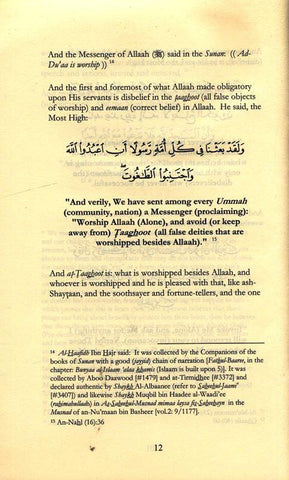 And the Messenger of Allaah (ﷺ) said in the Sunan: (( Ad-
Du'aa is worship )) 14
And the first and foremost of what Allaah made obligatory
upon His servants is disbelief in the ṯaaghoot (all false objects
of worship) and eemaan (correct belief) in Allaah. He said, the
Most High:
وَلَقَدْ بَعَثْنَا فِي كُلِّ أُمَّةٍ رَّسُولًا أَنِ اعْبُدُوا اللَّهَ
وَاجْتَنِبُوا الطَّاغُوتَ
"And verily, We have sent among every Ummah
(community, nation) a Messenger (proclaiming):
"Worship Allaah (Alone), and avoid (or keep
away from) Ṯaaghoot (all false deities that are
worshipped besides Allaah)." 15
And aṯ-Ṯaaghoot is: what is worshipped besides Allaah, and
whoever is worshipped and he is pleased with that, like ash-
Shayṯaan, and the soothsayer and fortune-tellers, and the one
14 Al-Ḥaafiḏh Ibn Ḥajr said: It was collected by the Companions of the
books of Sunan with a good (jayid) chain of narration [Fatḥul-Baaree, in the
chapter: Bunyaa al-Islaam 'alaa khamis (Islaam is built upon 5)]. It was
collected by Aboo Daawood [#1479] and at-Tirmidhee [#3372] and
declared authentic by Shaykh Al-Albaanee (refer to Ṣaḥeeḥul-Jaami'
[#3407]) and likewise Shaykh Muqbil bin Haadee al-Waadi'ee
(raḥimahullaah) in Aṣ-Ṣaḥeeḥul-Musnad mimaa laysa fiṣ-Ṣaḥeeḥayn in the
Musnad of an-Nu'maan bin Basheer [vol.2: 9/1177].
15 An-Naḥl (16):36
12